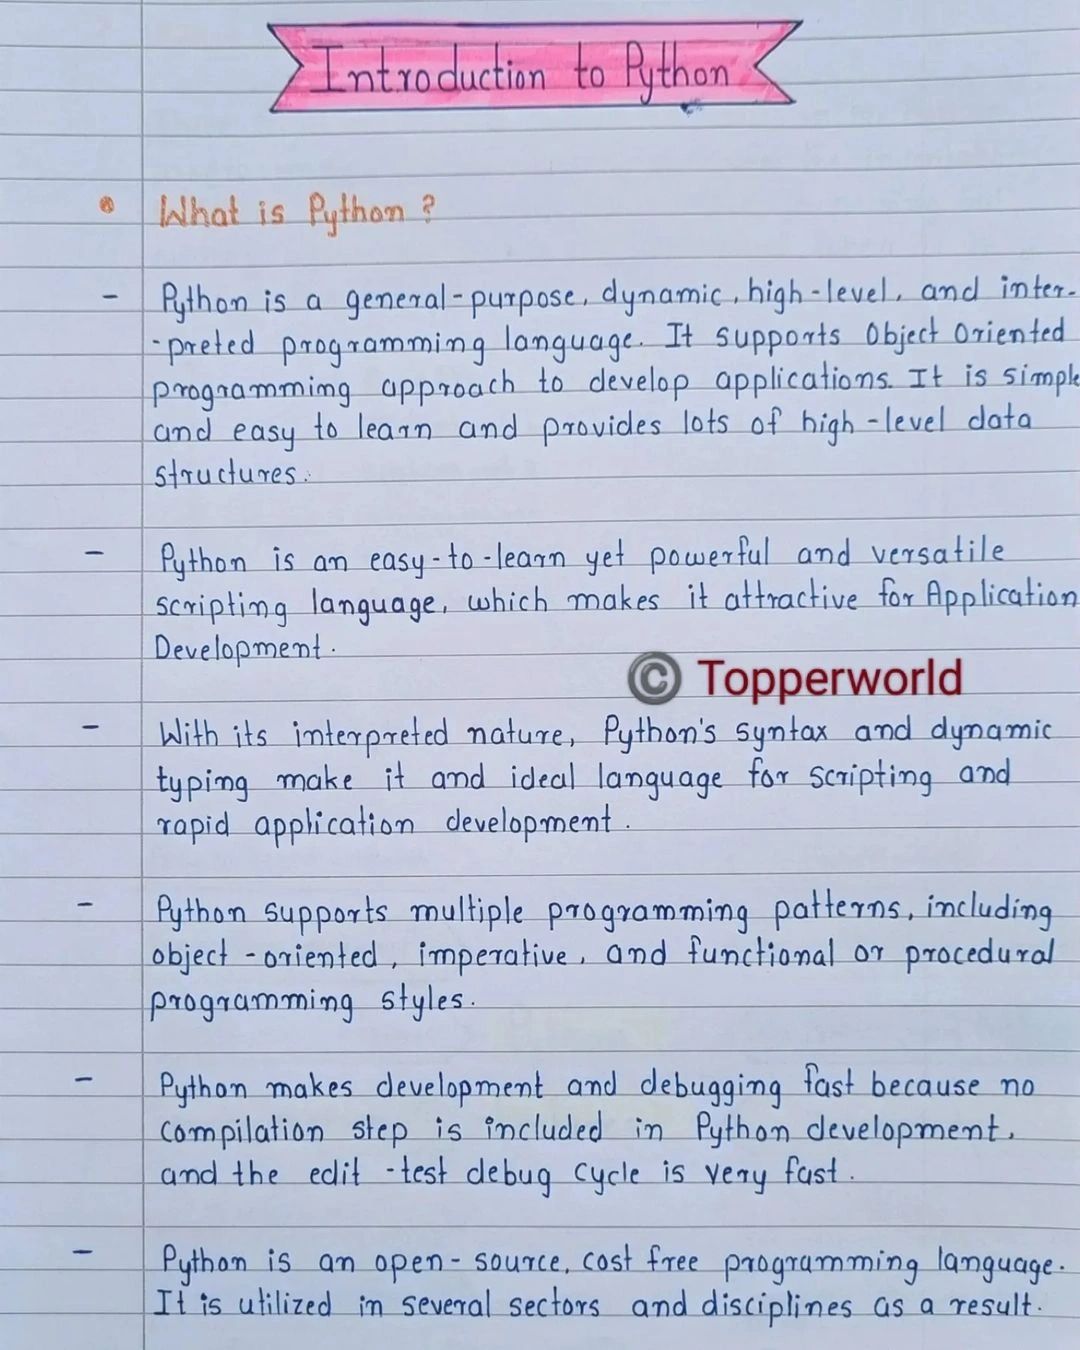 Introduction to Python
What is Python ?
- Python is a general-purpose, dynamic, high-level, and inter-
-preted programming language. It supports Object Oriented
programming approach to develop applications. It is simple
and easy to learn and provides lots of high-level data
structures.
- Python is an easy-to-learn yet powerful and versatile
scripting language, which makes it attractive for Application
Development.
© Topperworld
- With its interpreted nature, Python's syntax and dynamic
typing make it and ideal language for scripting and
rapid application development.
- Python supports multiple programming patterns, including
object-oriented, imperative, and functional or procedural
programming styles.
- Python makes development and debugging fast because no
compilation step is included in Python development,
and the edit -test debug cycle is very fast.
- Python is an open-source, cost free programming language.
It is utilized in several sectors and disciplines as a result.